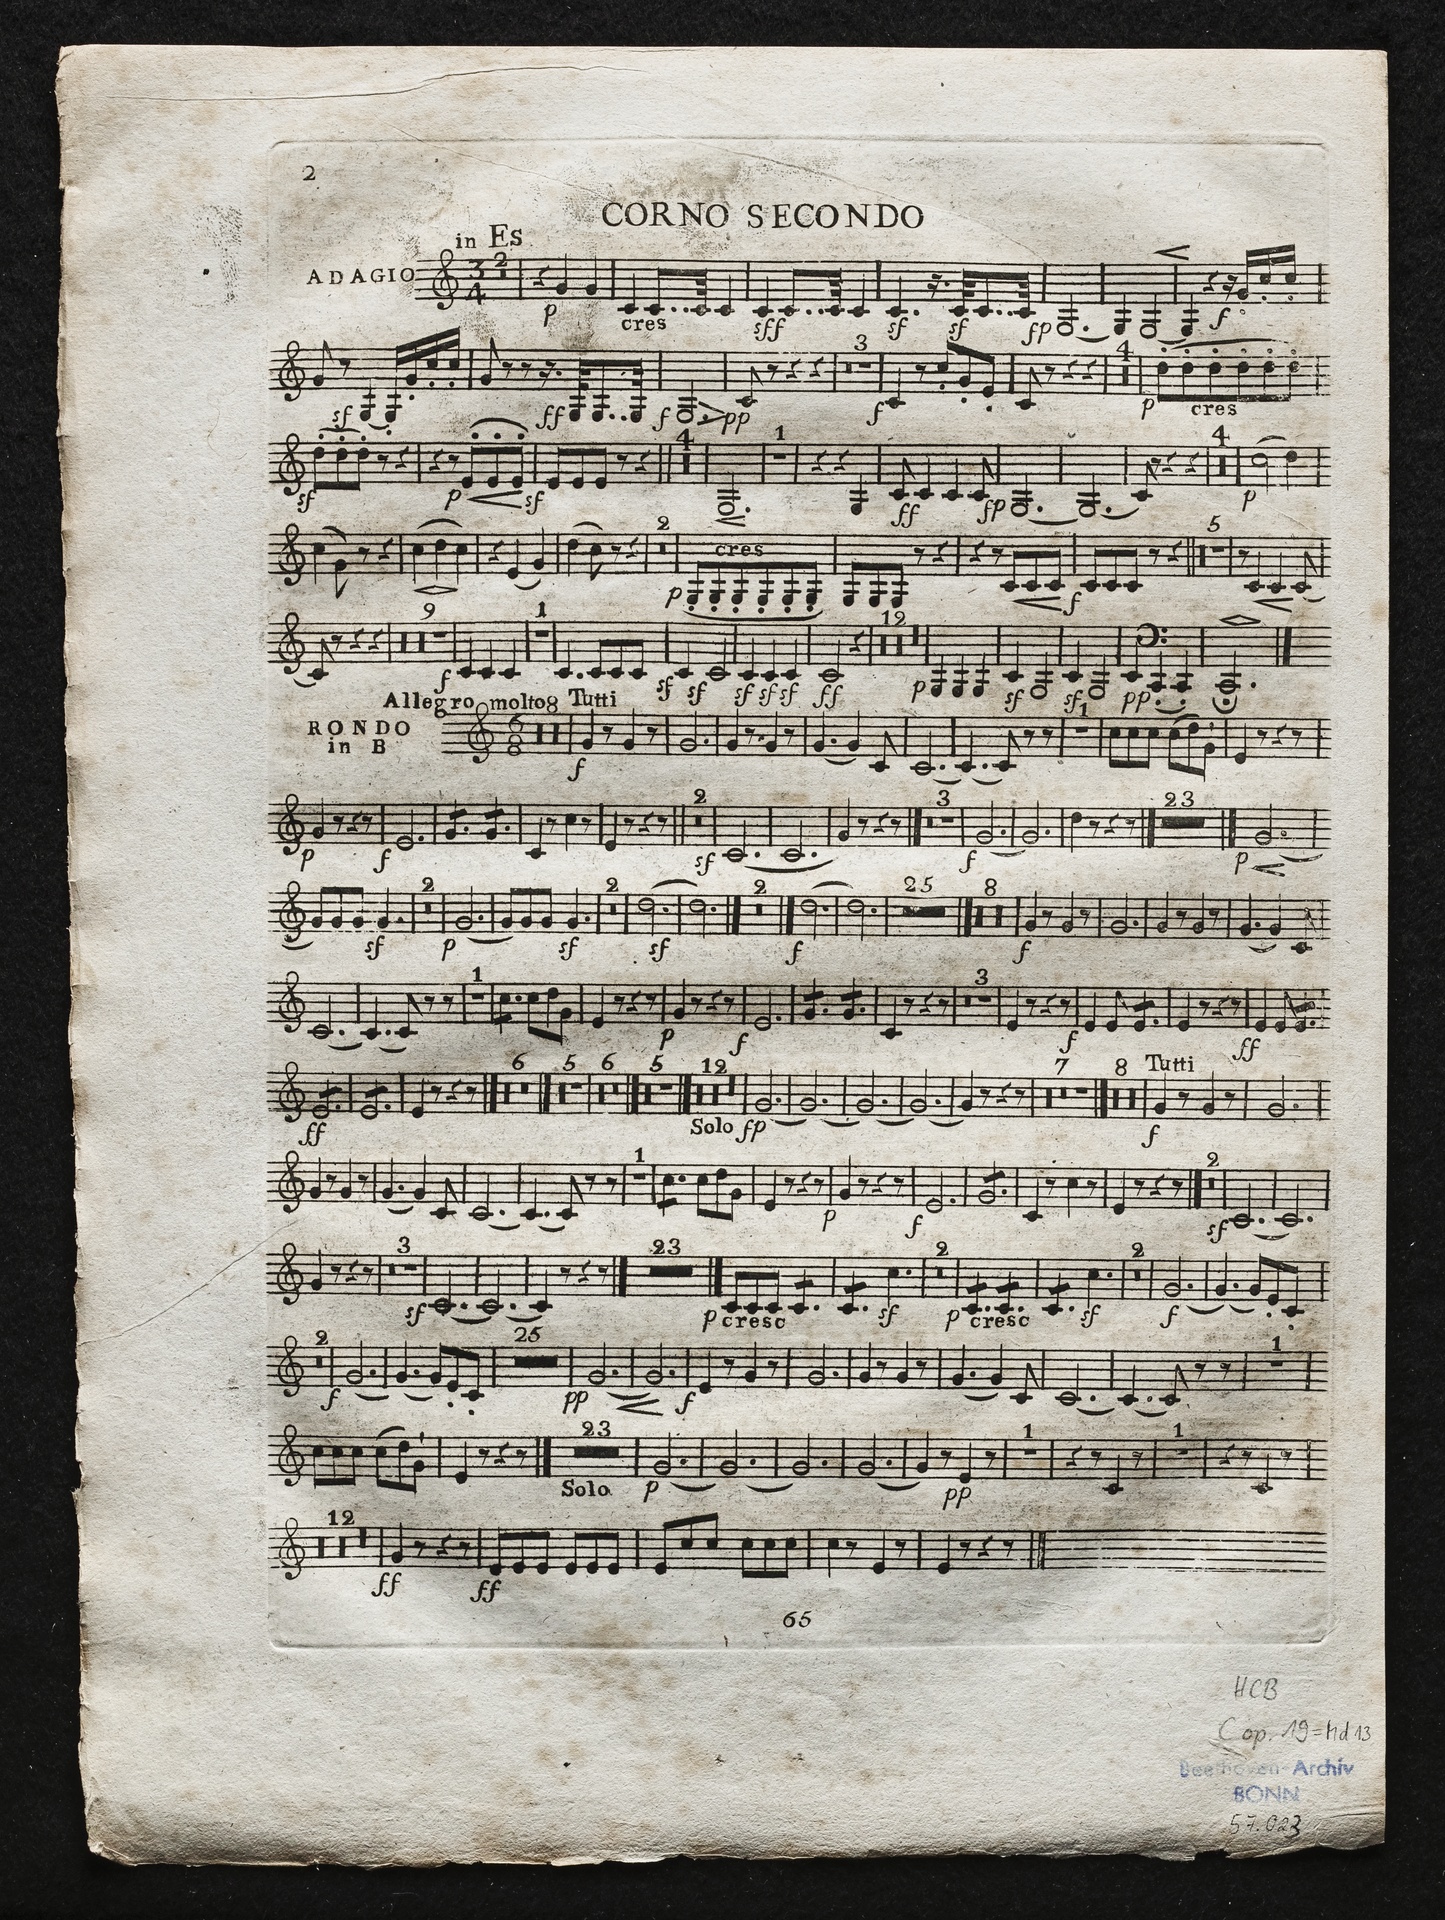 2
CORNO SECONDO
in Es
ADAGIO
3 4
2
p cres sff sf sf fp f
3 4
sf ff f pp f p cres
4 1 4
sf p sf ff fp p
2 5
cres
p f
9 1 12
f sf sf sf sf sf ff p sf sf pp
Allegro molto 8 Tutti
RONDO
in B
6 8
1
f
2 3 23
p f sf f p
2 2 2 25 8
sf p sf sf f f
1 3
p f f ff
6 5 6 5 12 7 8 Tutti
ff Solo fp f
1 2
p f sf
3 23 2 2
sf p cresc sf p cresc sf f
2 25 1
f pp f
23 1 1
Solo p pp
12
ff ff
65
HCB
C op. 19 = Md 13
Beethoven-Archiv
BONN
57.023